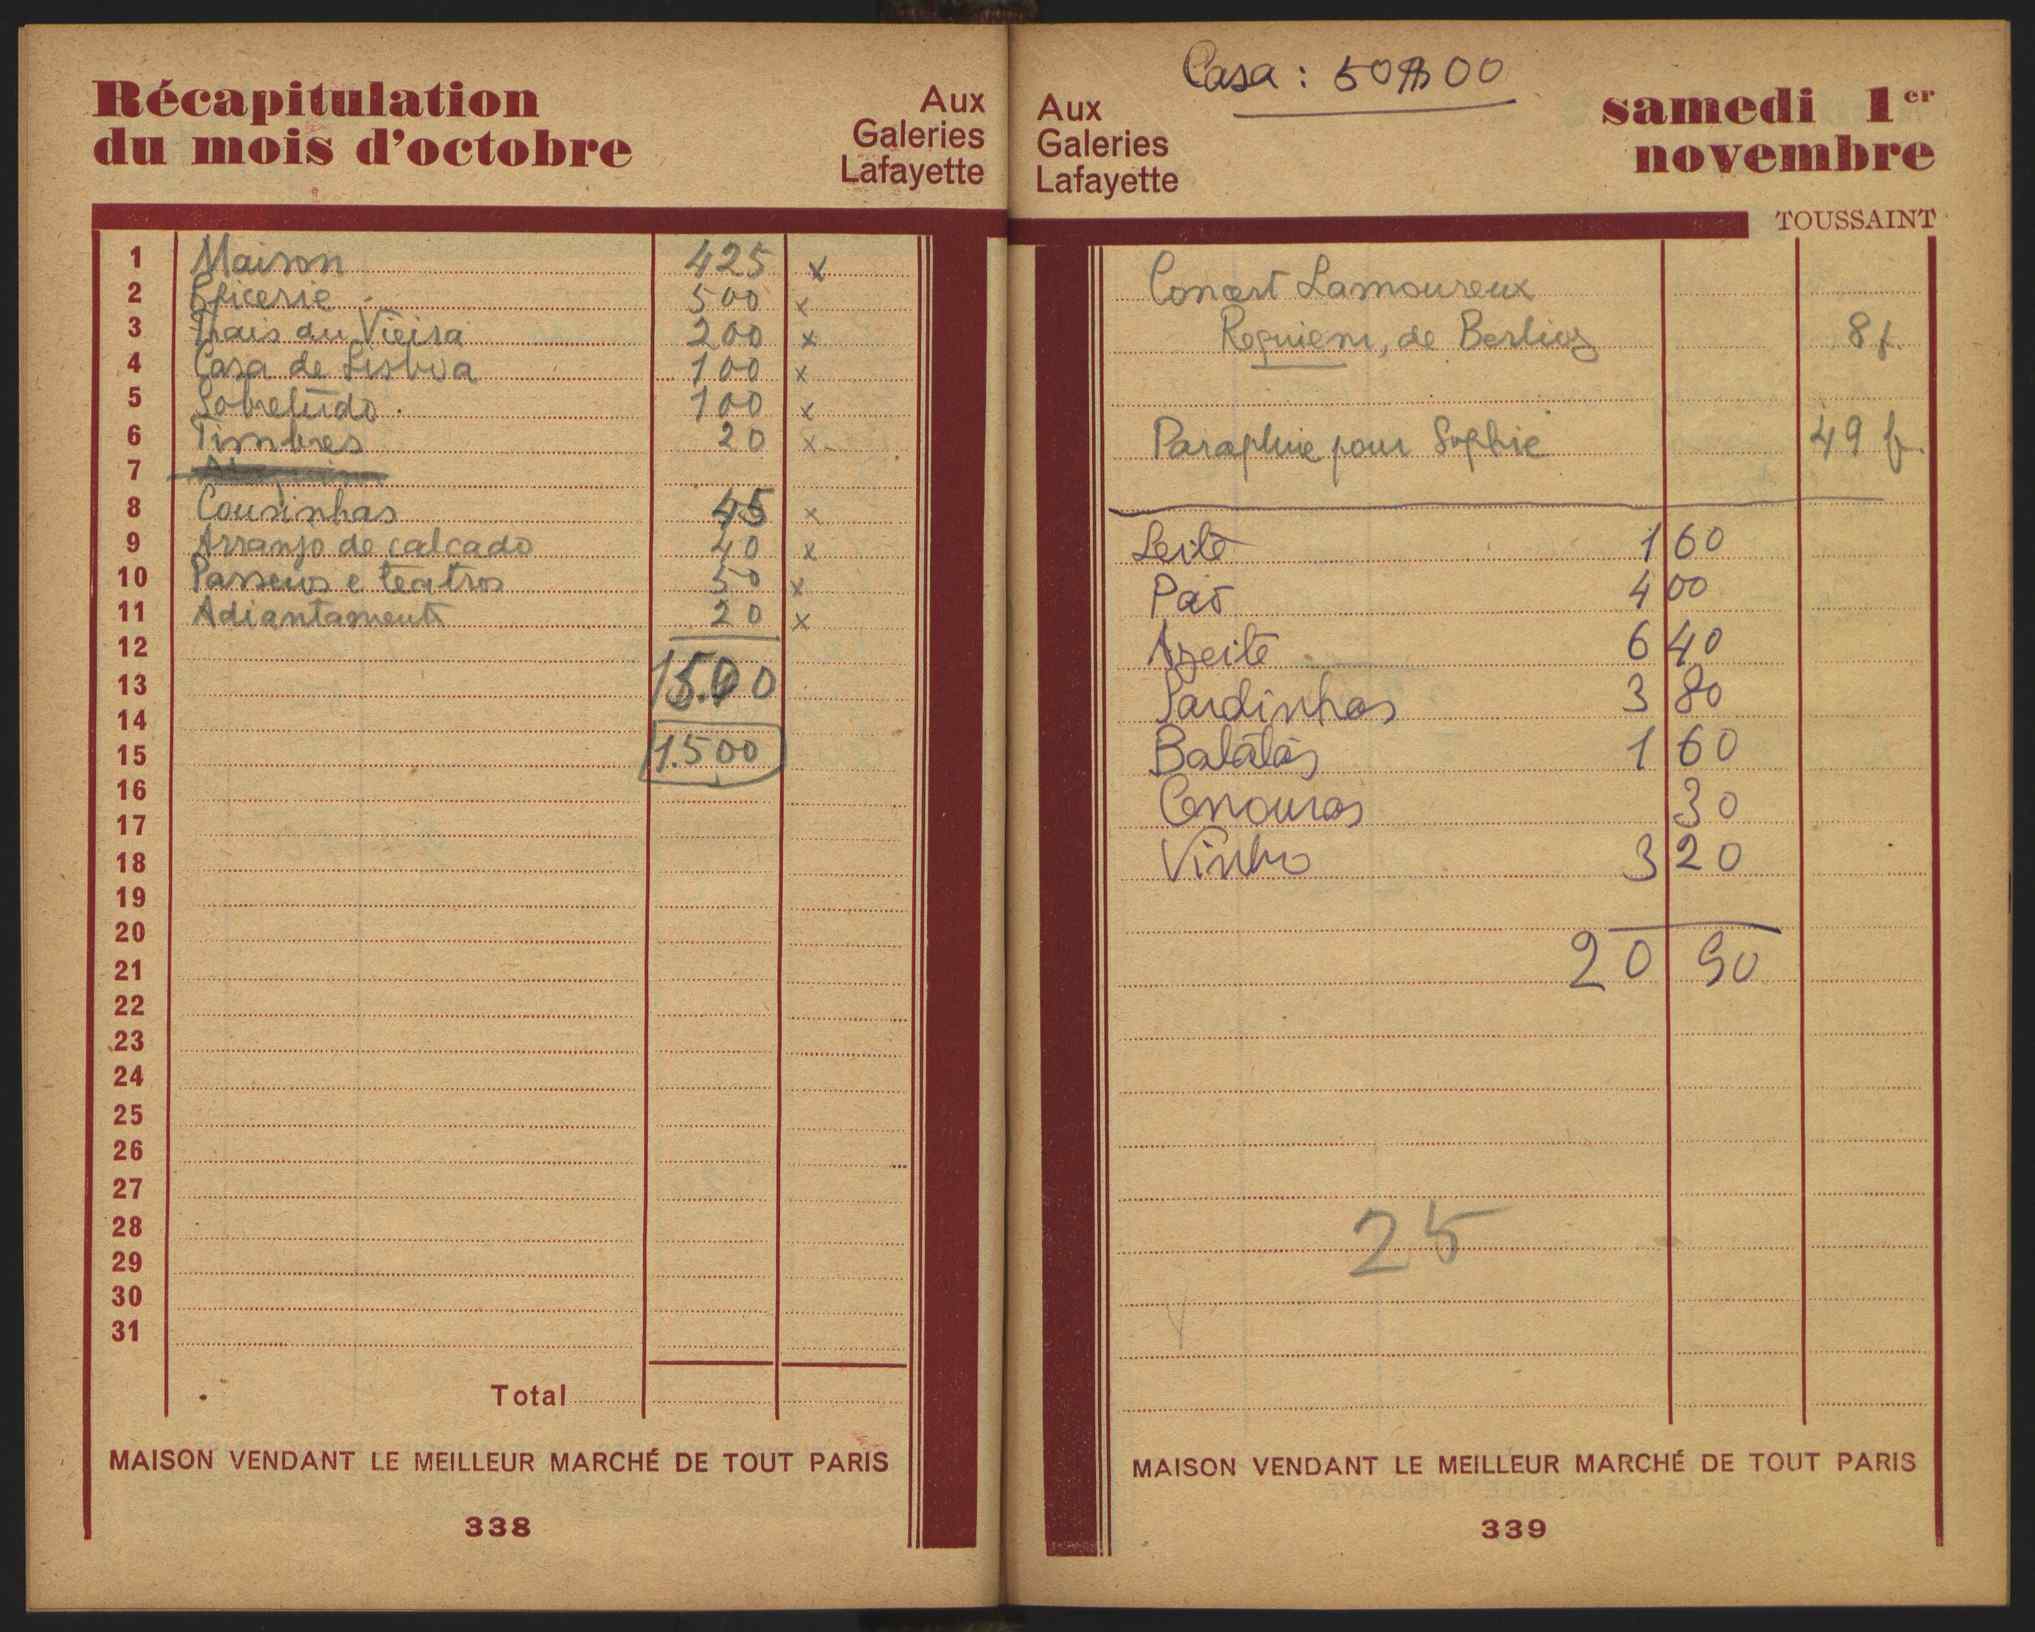 Récapitulation
du mois d'octobre
Aux
Galeries
Lafayette
1 Maison 425 x
2 Epicerie 500 x
3 Frais du Vieira 200 x
4 Casa de Lisboa 100 x
5 Sobretudo 100 x
6 Timbres 20 x
7
8 Cousinhas 45 x
9 Arranjo de calcado 40 x
10 Passeios e teatros 50 x
11 Adiantamento 20 x
12
13 1500
14
15 1.500
16
17
18
19
20
21
22
23
24
25
26
27
28
29
30
31
Total
MAISON VENDANT LE MEILLEUR MARCHÉ DE TOUT PARIS
338
Casa : 50$00
Aux
Galeries
Lafayette
samedi 1er
novembre
TOUSSAINT
Concert Lamoureux
Requiem, de Berlioz 8 f.
Parapluie pour Sophie 49 fr.
Leite 1 60
Pão 4 00
Azeite 6 40
Sardinhas 3 80
Batatas 1 60
Cenouras 30
Vinho 3 20
20 90
25
MAISON VENDANT LE MEILLEUR MARCHÉ DE TOUT PARIS
339